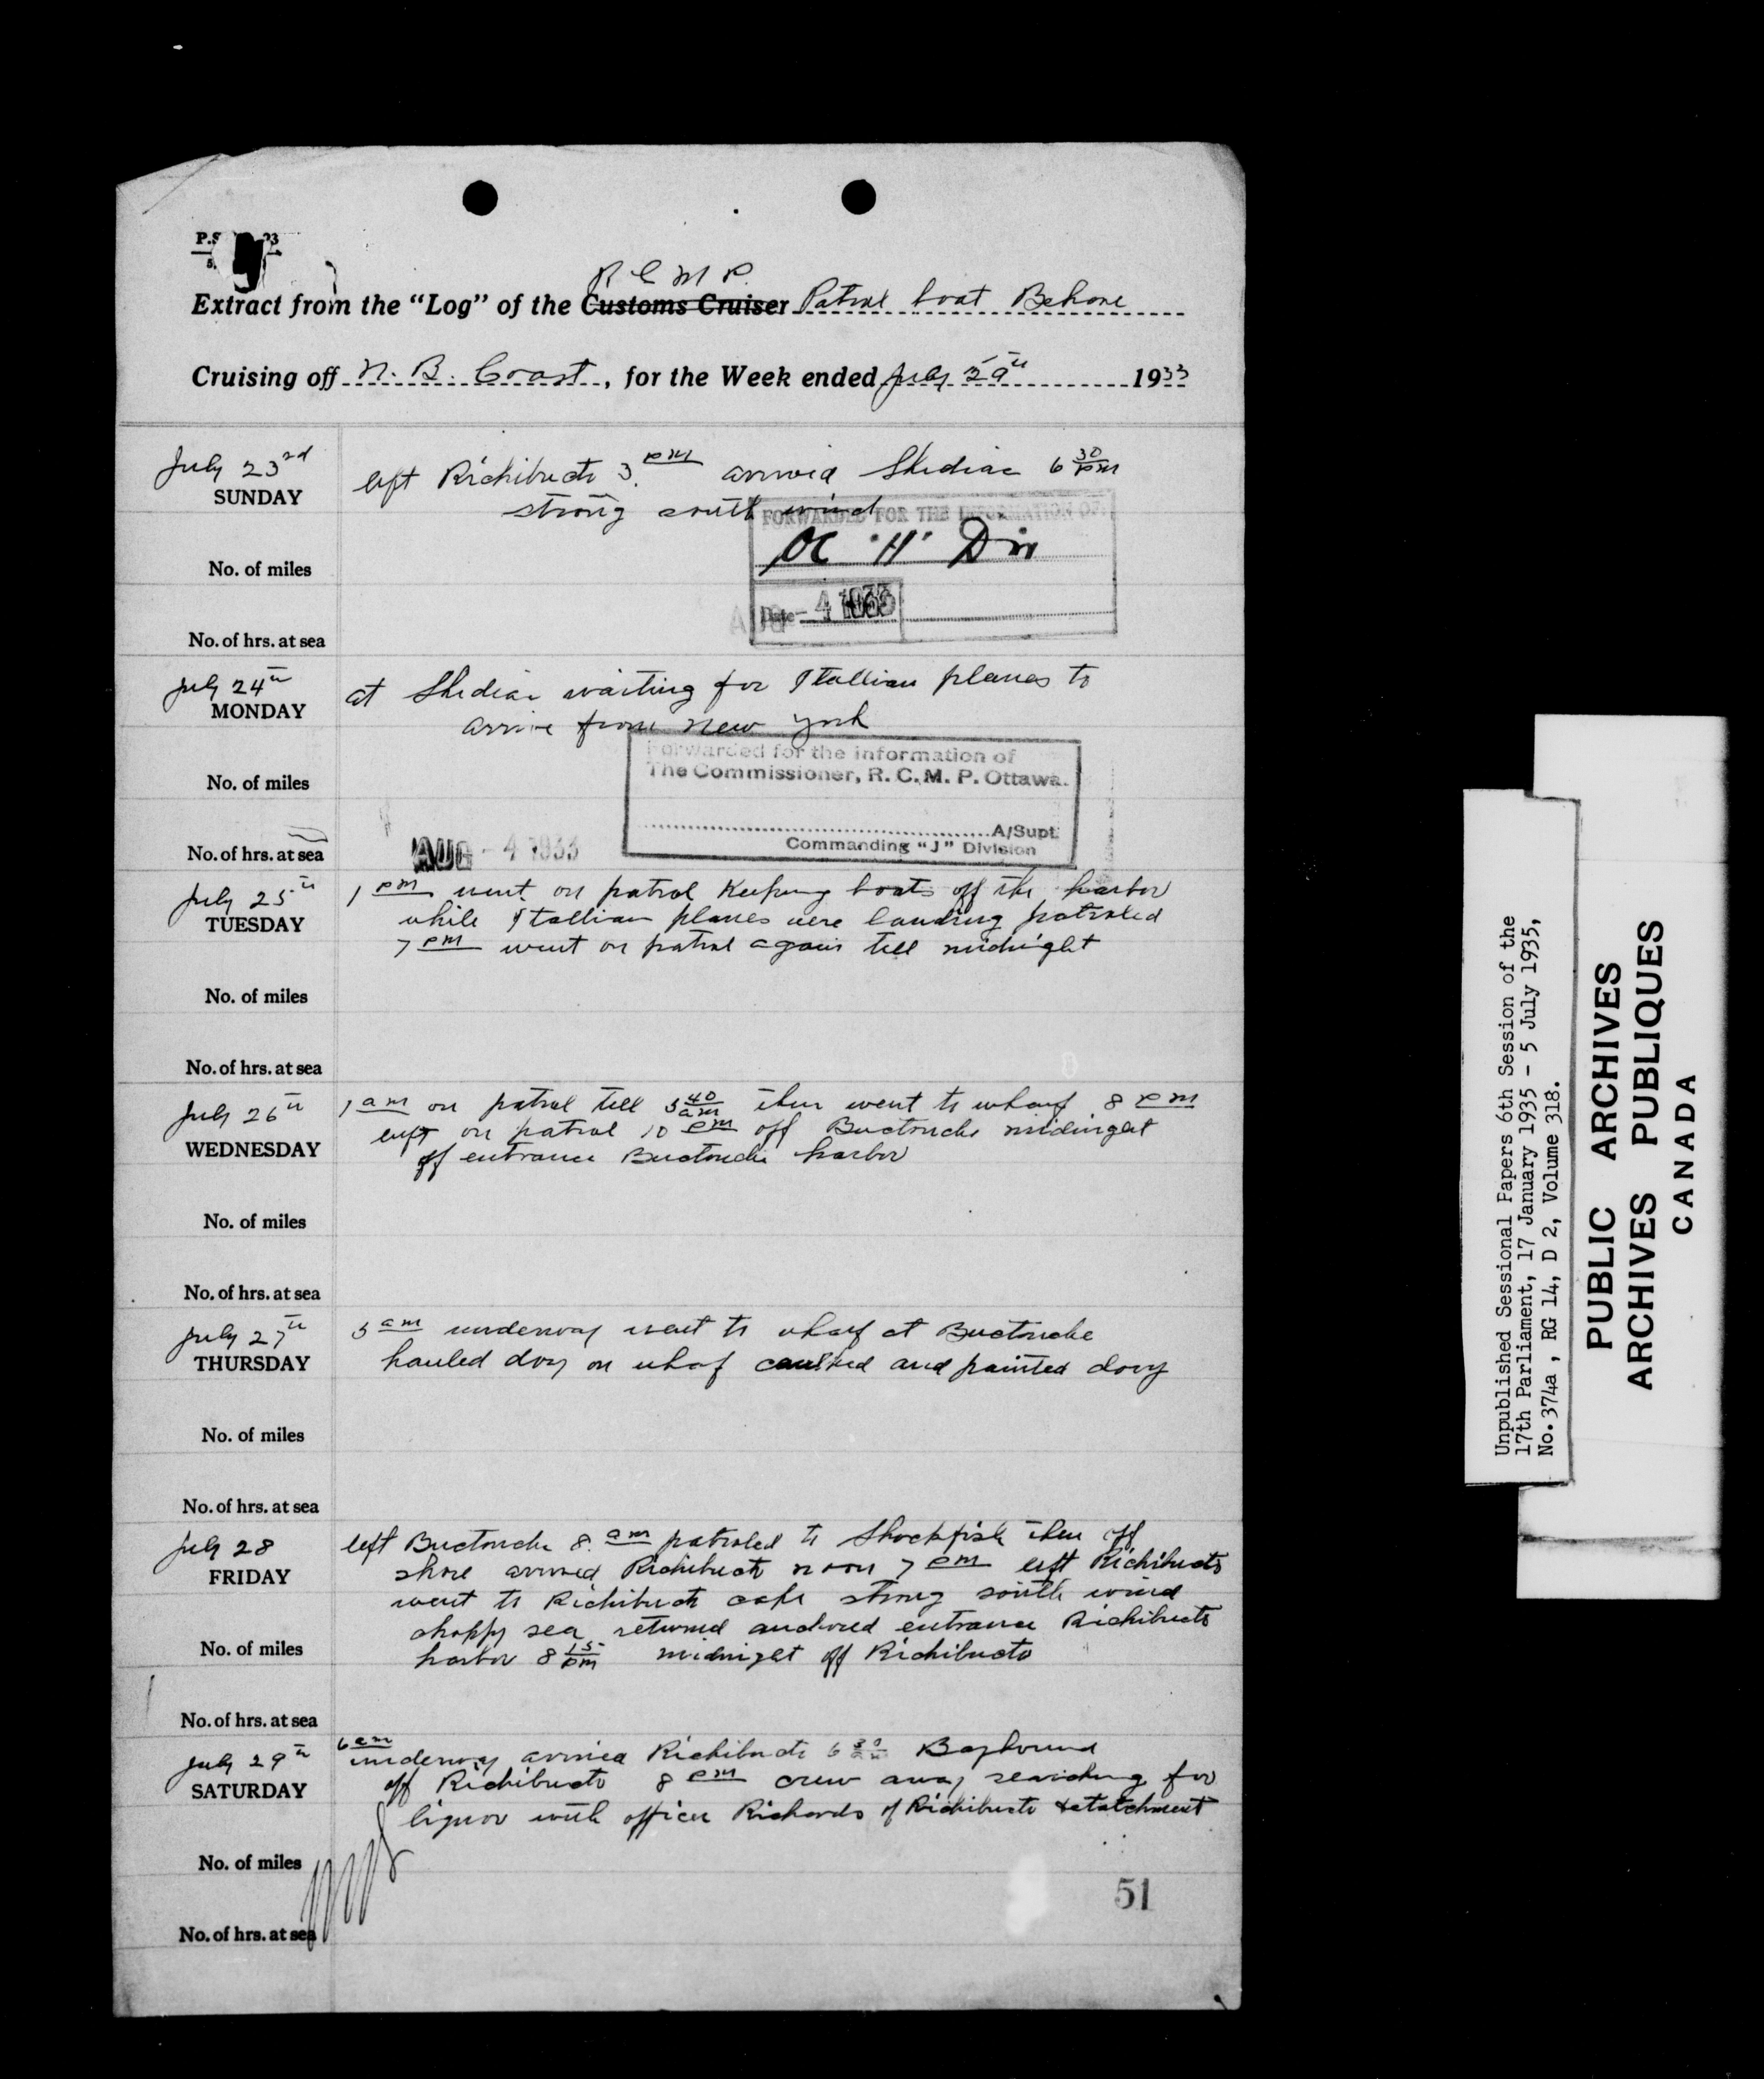 R C M P.
Extract from the "Log" of the Customs Cruiser Patrol boat Behave
Cruising off N. B. Coast, for the Week ended July 29th 1933
July 23rd
SUNDAY
left Richibucto 3 pm arrived Shediac 6 30 pm
strong south wind
FORWARDED FOR THE INFORMATION OF
OC "H" Div
Date AUG - 4 1933
No. of miles
No. of hrs. at sea
July 24th
MONDAY
at Shediac waiting for Itallian planes to
arrive from New York
Forwarded for the information of
The Commissioner, R. C. M. P. Ottawa.
A/Supt.
Commanding "J" Division
AUG - 4 1933
No. of miles
No. of hrs. at sea
July 25th
TUESDAY
1 pm went on patrol Keeping boats off the harbor
while Itallian planes were landing patroled
7 pm went on patrol again till midnight
No. of miles
No. of hrs. at sea
July 26th
WEDNESDAY
1 am on patrol till 3 40 am then went to wharf 8 pm
left on patrol 10 pm off Buctouche midnight
off entrance Buctouche harbor
No. of miles
No. of hrs. at sea
July 27th
THURSDAY
5 am underway went to wharf at Buctouche
hauled dory on wharf caulked and painted dory
No. of miles
No. of hrs. at sea
July 28
FRIDAY
left Buctouche 8 am patroled to Shockfish then off
shore arrived Richibucto noon 7 pm left Richibucto
went to Richibucto cape strong south wind
choppy sea returned anchored entrance Richibucto
harbor 8 15 pm midnight off Richibucto
No. of miles
No. of hrs. at sea
July 29th
SATURDAY
6 am underway arrived Richibucto 6 30 am Bayhound
off Richibucto 8 pm crew away searching for
liquor with officer Richards of Richibucto detatchment
No. of miles
No. of hrs. at sea
51
Unpublished Sessional Papers 6th Session of the
17th Parliament, 17 January 1935 - 5 July 1935,
No. 374a , RG 14, D 2, Volume 318.
PUBLIC ARCHIVES
ARCHIVES PUBLIQUES
CANADA